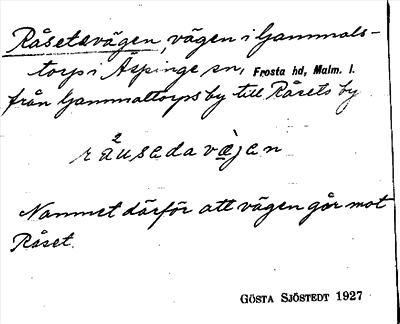 Råsetsvägen, vägen i Gammals-
torp i Äspinge sn, Frosta hd, Malm. l.
från Gammaltorps by till Råsets by
2
råusadavæ̀jen
Namnet därför att vägen går mot
Råset.
GÖSTA SJÖSTEDT 1927